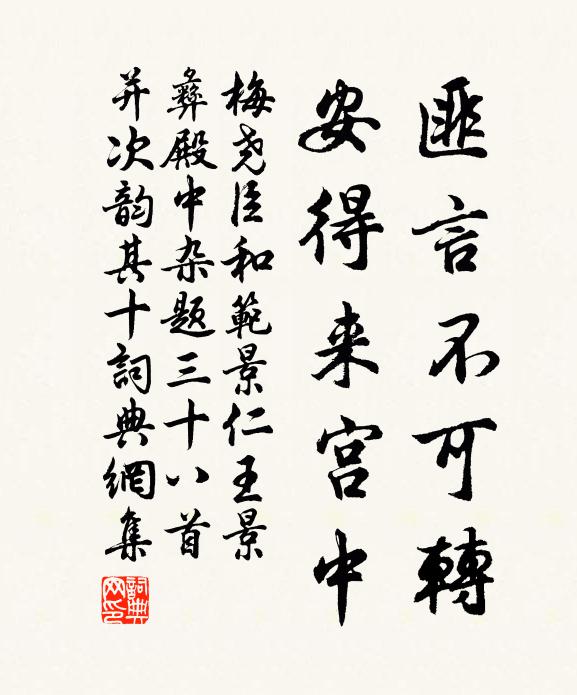 匪言不可轉
安得来宫中
梅尧臣和範景仁王景
彝殿中杂题三十八首
并次韵其十詞典網集
詞典网印